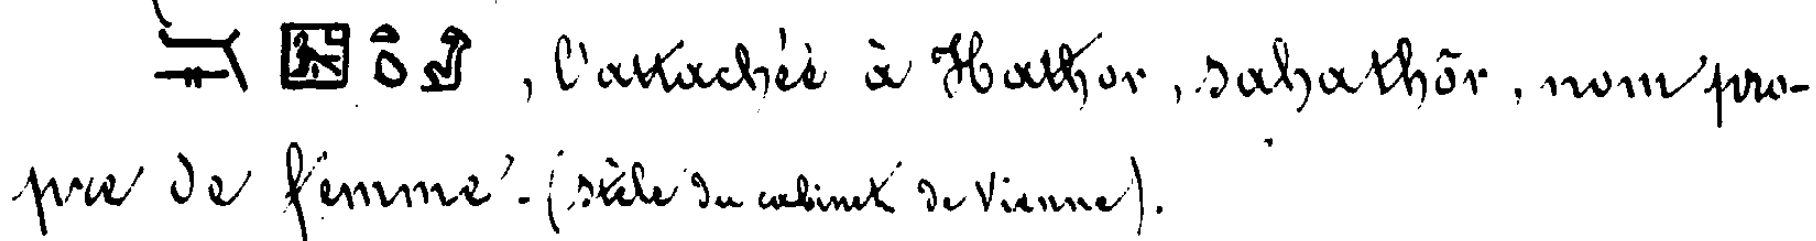 , l'attachée à Hathor, sahathōr, nom pro-
pre de femme. (stèle du cabinet de Vienne).